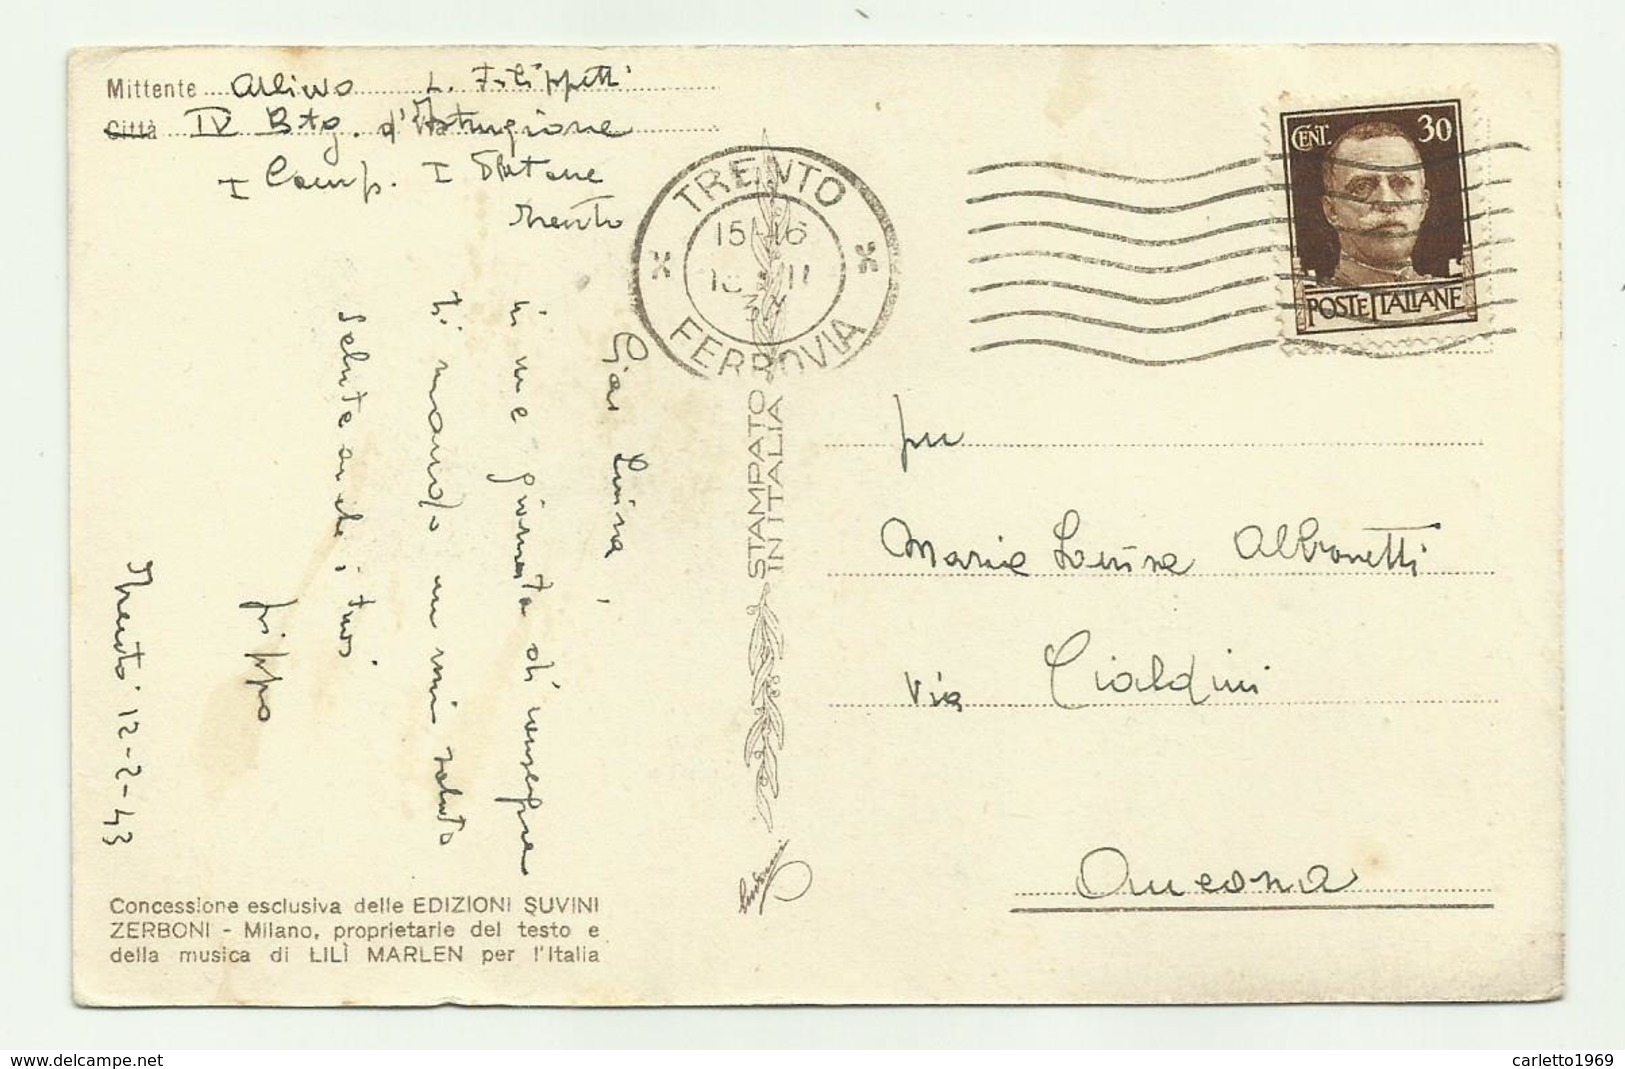 Mittente Allievo L. Filippetti
Città IV Btg. d'Istruzione
I Comp. I Plotone
Trento
Cara Luisa,
in una giornata di consegna
ti mando un mio saluto
saluta anche i tuoi
Filippo
Trento 12-2-43
Concessione esclusiva delle EDIZIONI SUVINI
ZERBONI - Milano, proprietarie del testo e
della musica di LILÌ MARLEN per l'Italia
TRENTO
15-16
II
FERROVIA
STAMPATO
IN ITALIA
CENT. 30
POSTE ITALIANE
Maria Luisa Albonetti
Via Cialdini
Ancona
www.delcampe.net
carletto1969